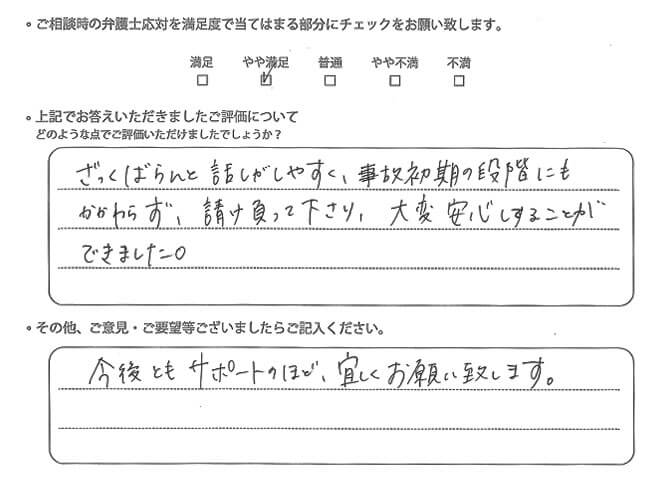 • ご相談時の弁護士応対を満足度で当てはまる部分にチェックをお願い致します。
満足 やや満足 普通 やや不満 不満
• 上記でお答えいただきましたご評価について
どのような点でご評価いただけましたでしょうか？
ざっくばらんと話しがしやすく、事故初期の段階にも
かかわらず、請け負って下さり、大変安心しすることが
できました。
• その他、ご意見・ご要望等ございましたらご記入ください。
今後ともサポートのほど、宜しくお願い致します。